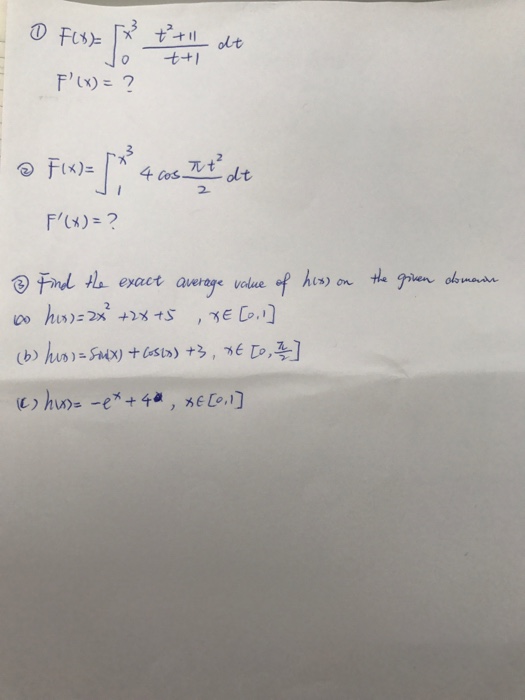 ① F(x)= ∫₀^x³ t²+11 / t+1 dt
F'(x) = ?
② F(x)= ∫₁^x³ 4 cos πt²/2 dt
F'(x) = ?
③ Find the exact average value of h(x) on the given domain
(a) h(x)=2x²+2x+5 , x∈[0,1]
(b) h(x)=Sin(x)+Cos(x)+3, x∈[0,π/2]
(c) h(x)= -eˣ+4 , x∈[0,1]